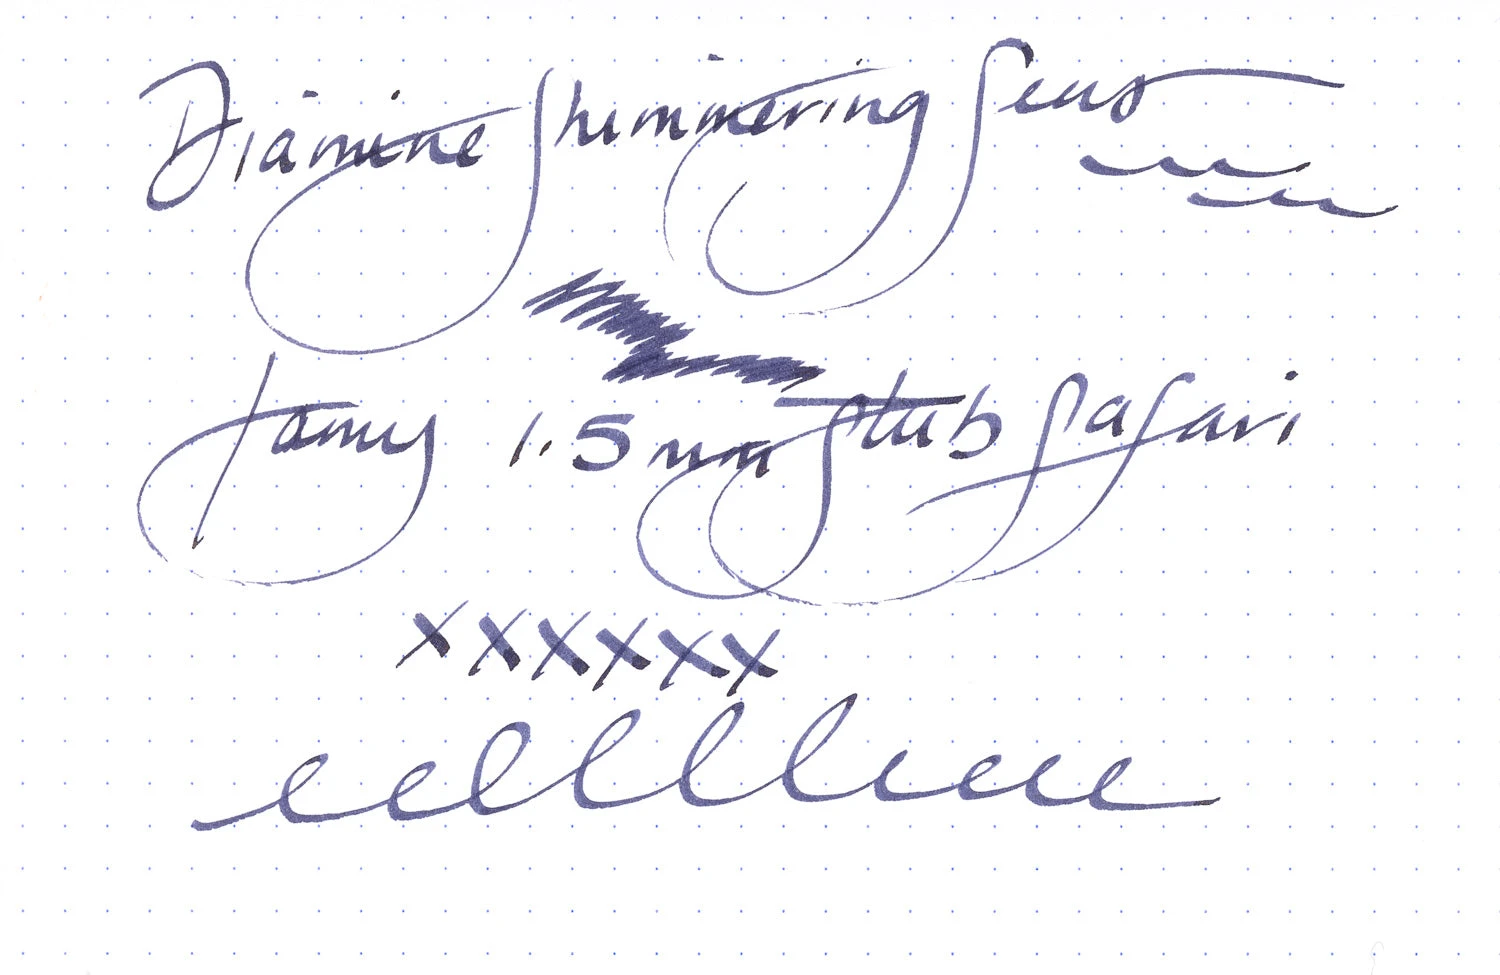 Diamine Shimmering Seas
Lamy 1.5 mm Stub Safari
xxxxxx
eelllleee